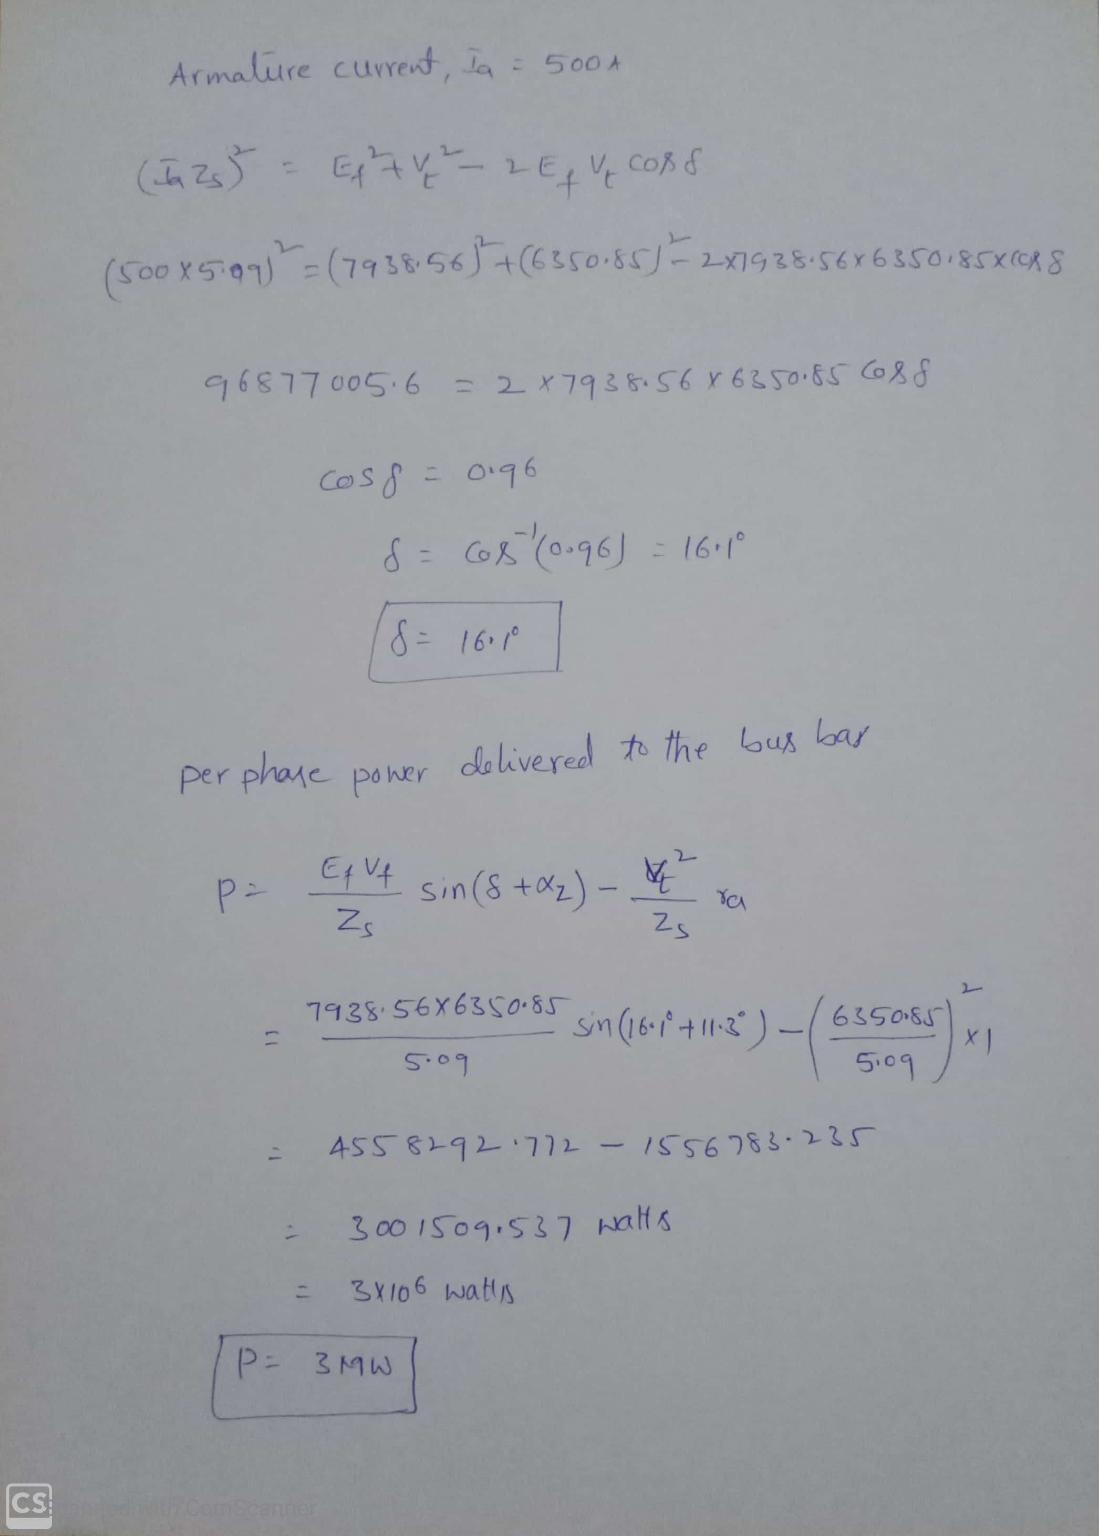 Armature current, Ia = 500A
(Ia Zs)² = Ef² + Vt² - 2 Ef Vt cosδ
(500 x 5.09)² = (7938.56)² + (6350.85)² - 2x7938.56x6350.85xcosδ
96877005.6 = 2 x 7938.56 x 6350.85 cosδ
cosδ = 0.96
δ = cos⁻¹(0.96) = 16.1°
δ = 16.1°
per phase power delivered to the bus bar
P = Ef Vt / Zs sin(δ + αz) - Vt² / Zs ra
= 7938.56x6350.85 / 5.09 sin(16.1° + 11.3°) - (6350.85 / 5.09)² x 1
= 4558292.772 - 1556783.235
= 3001509.537 watts
= 3x106 watts
P = 3 MW
CS